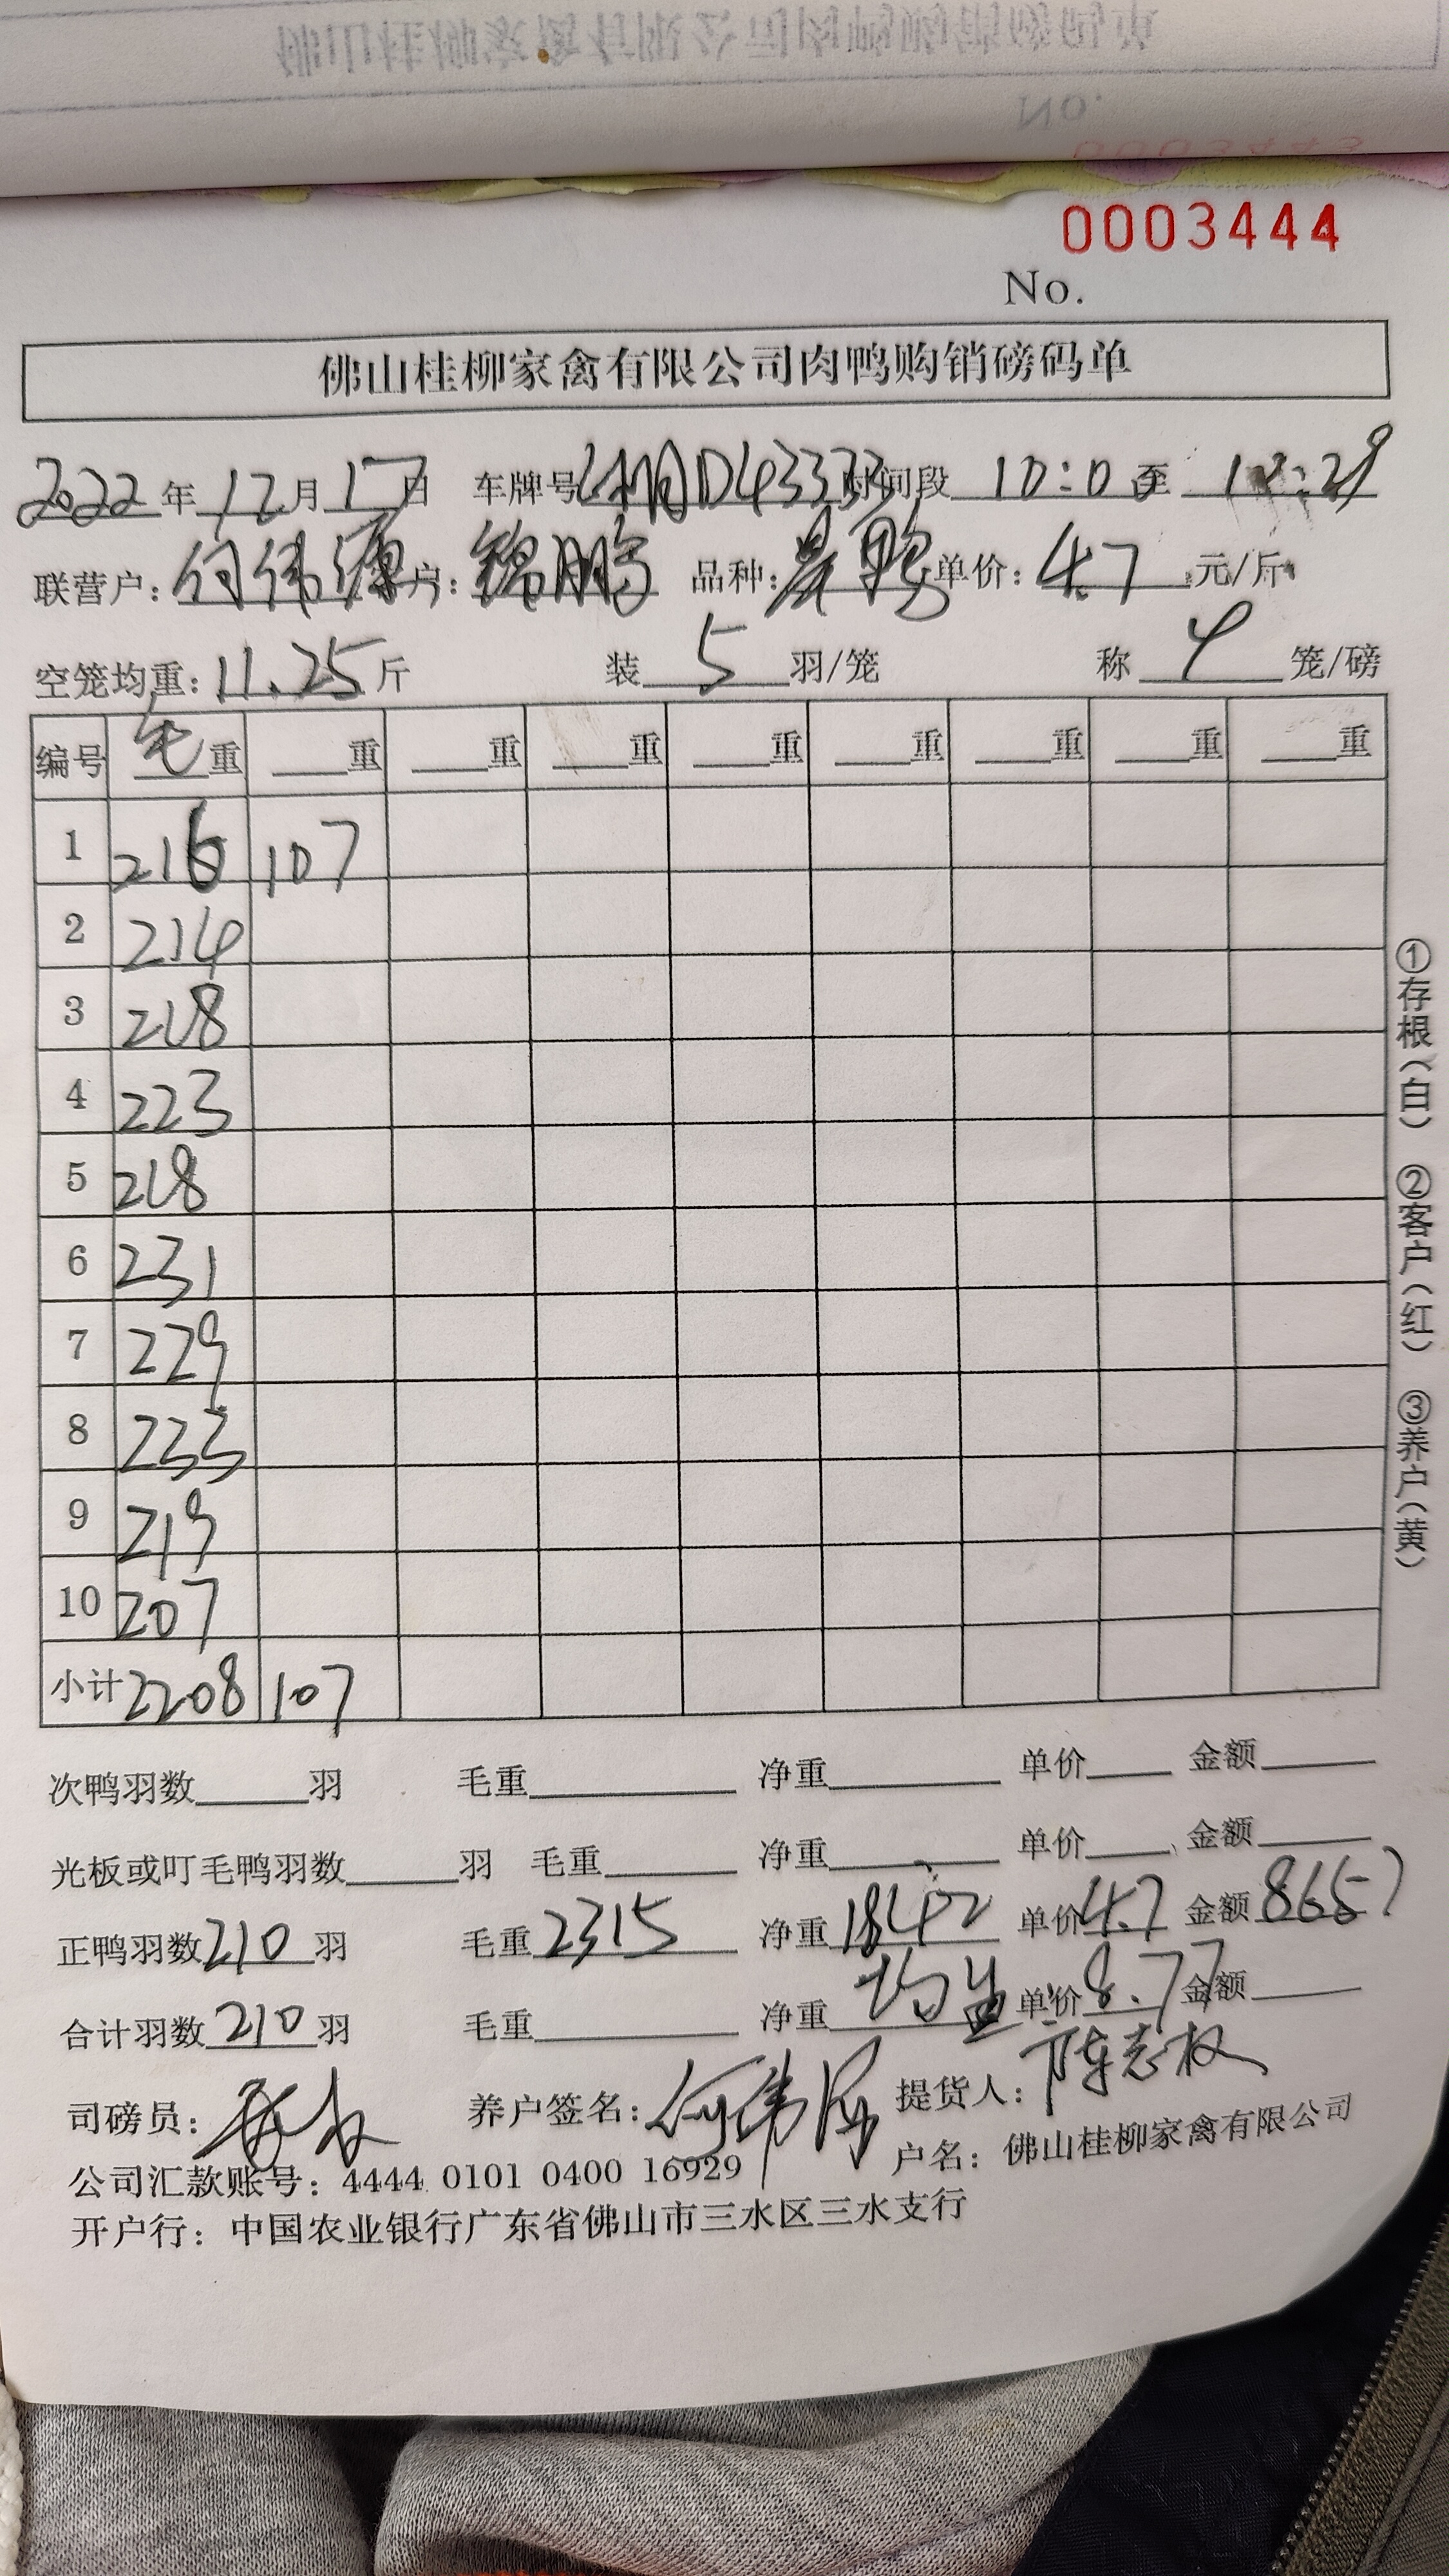 0003444
No.
佛山桂柳家禽有限公司肉鸭购销磅码单
2022年12月17日 车牌号 D43333 时间段 10:00至 :29
联营户：何伟源 户：锦鹏 品种： 鸭 单价：4.7元/斤
空笼均重：11.25斤 装5羽/笼 称4笼/磅
编号 毛重 重 重 重 重 重 重 重 重
1 216 107
2 214
3 218
4 223
5 218
6 231
7 229
8 233
9 219
10 207
小计 2208 107
次鸭羽数 羽 毛重 净重 单价 金额
光板或叮毛鸭羽数 羽 毛重 净重 单价 金额
正鸭羽数210羽 毛重2315 净重1842 单价4.7 金额8657
合计羽数210羽 毛重 净重 均 单价8.77金额
司磅员： 养户签名：何伟源 提货人：陈志权
公司汇款账号：4444 0101 0400 16929 户名：佛山桂柳家禽有限公司
开户行：中国农业银行广东省佛山市三水区三水支行
①存根（白） ②客户（红） ③养户（黄）